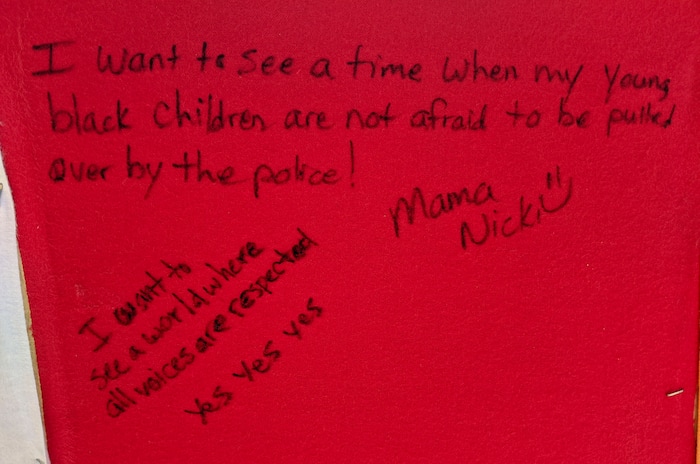 I want to see a time when my young
black children are not afraid to be pulled
over by the police!
Mama
Nicki
I want to
see a world where
all voices are respected
yes yes yes